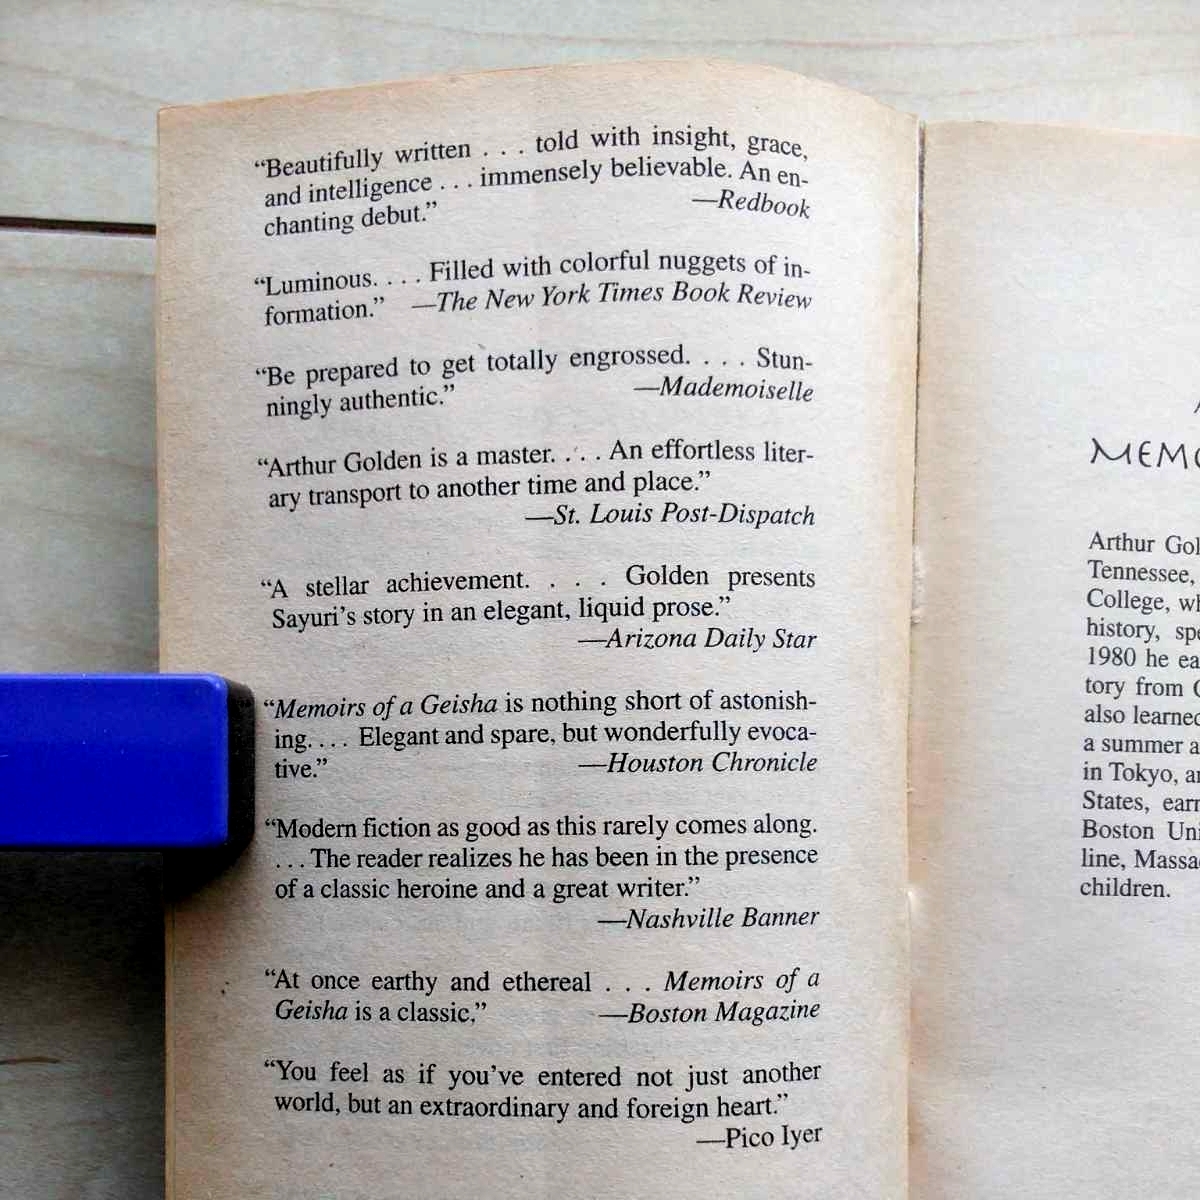 “Beautifully written . . . told with insight, grace,
and intelligence . . . immensely believable. An en-
chanting debut.” —Redbook
“Luminous. . . . Filled with colorful nuggets of in-
formation.” —The New York Times Book Review
“Be prepared to get totally engrossed. . . . Stun-
ningly authentic.” —Mademoiselle
“Arthur Golden is a master. . . . An effortless liter-
ary transport to another time and place.”
—St. Louis Post-Dispatch
“A stellar achievement. . . . Golden presents
Sayuri’s story in an elegant, liquid prose.”
—Arizona Daily Star
“Memoirs of a Geisha is nothing short of astonish-
ing. . . . Elegant and spare, but wonderfully evoca-
tive.” —Houston Chronicle
“Modern fiction as good as this rarely comes along.
. . . The reader realizes he has been in the presence
of a classic heroine and a great writer.”
—Nashville Banner
“At once earthy and ethereal . . . Memoirs of a
Geisha is a classic.” —Boston Magazine
“You feel as if you’ve entered not just another
world, but an extraordinary and foreign heart.”
—Pico Iyer
Arthur
Tennessee,
College,
history,
1980 he
tory from
also learned
a summer
in Tokyo,
States,
Boston
line,
children.